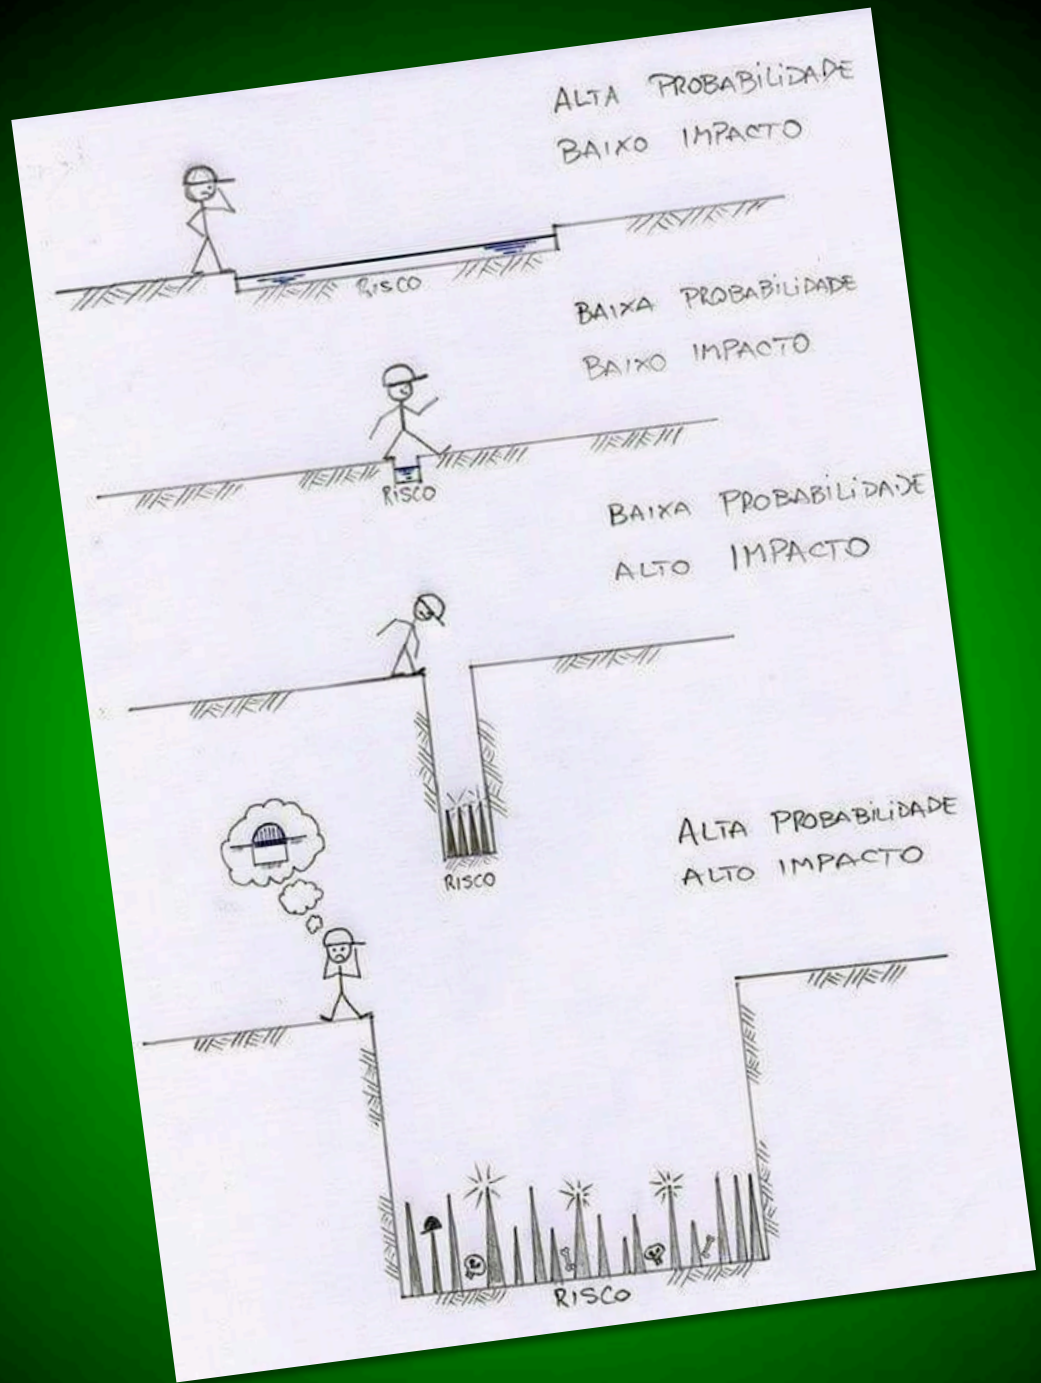 ALTA PROBABILIDADE
BAIXO IMPACTO
RISCO
BAIXA PROBABILIDADE
BAIXO IMPACTO
RISCO
BAIXA PROBABILIDADE
ALTO IMPACTO
RISCO
ALTA PROBABILIDADE
ALTO IMPACTO
RISCO